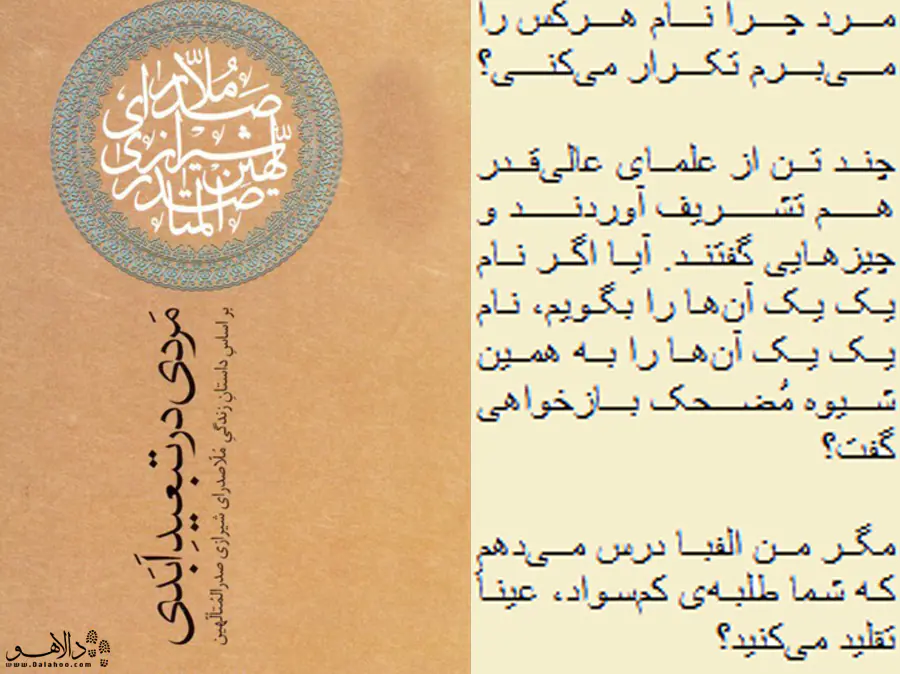 ملّاصدرای
شیرازی
صدرالمتألّهین
مَردی در تبعیدِ اَبَدی
بر اساسِ داستانِ زندگیِ مُلّاصدرای شیرازی صدرالمُتألّهین
دالاهو
www.Dalahoo.com
مــرد چــرا نــام هــرکس را
مــی‌بــرم تکــرار می‌کنــی؟
چنـد تـن از علمـای عالی‌قـدر
هــم تشــریف آوردنــد و
چیزهـایی گفتنـد. آیـا اگـر نـام
یـک یـک آن‌هـا را بگـویم، نـام
یـک یـک آن‌هـا را بـه همـین
شــیوه مُضــحک بــازخواهی
گفت؟
مگـر مـن الفبـا درس مـی‌دهم
که شما طلبه‌ی کم‌سواد، عیناً
تقلید می‌کنید؟